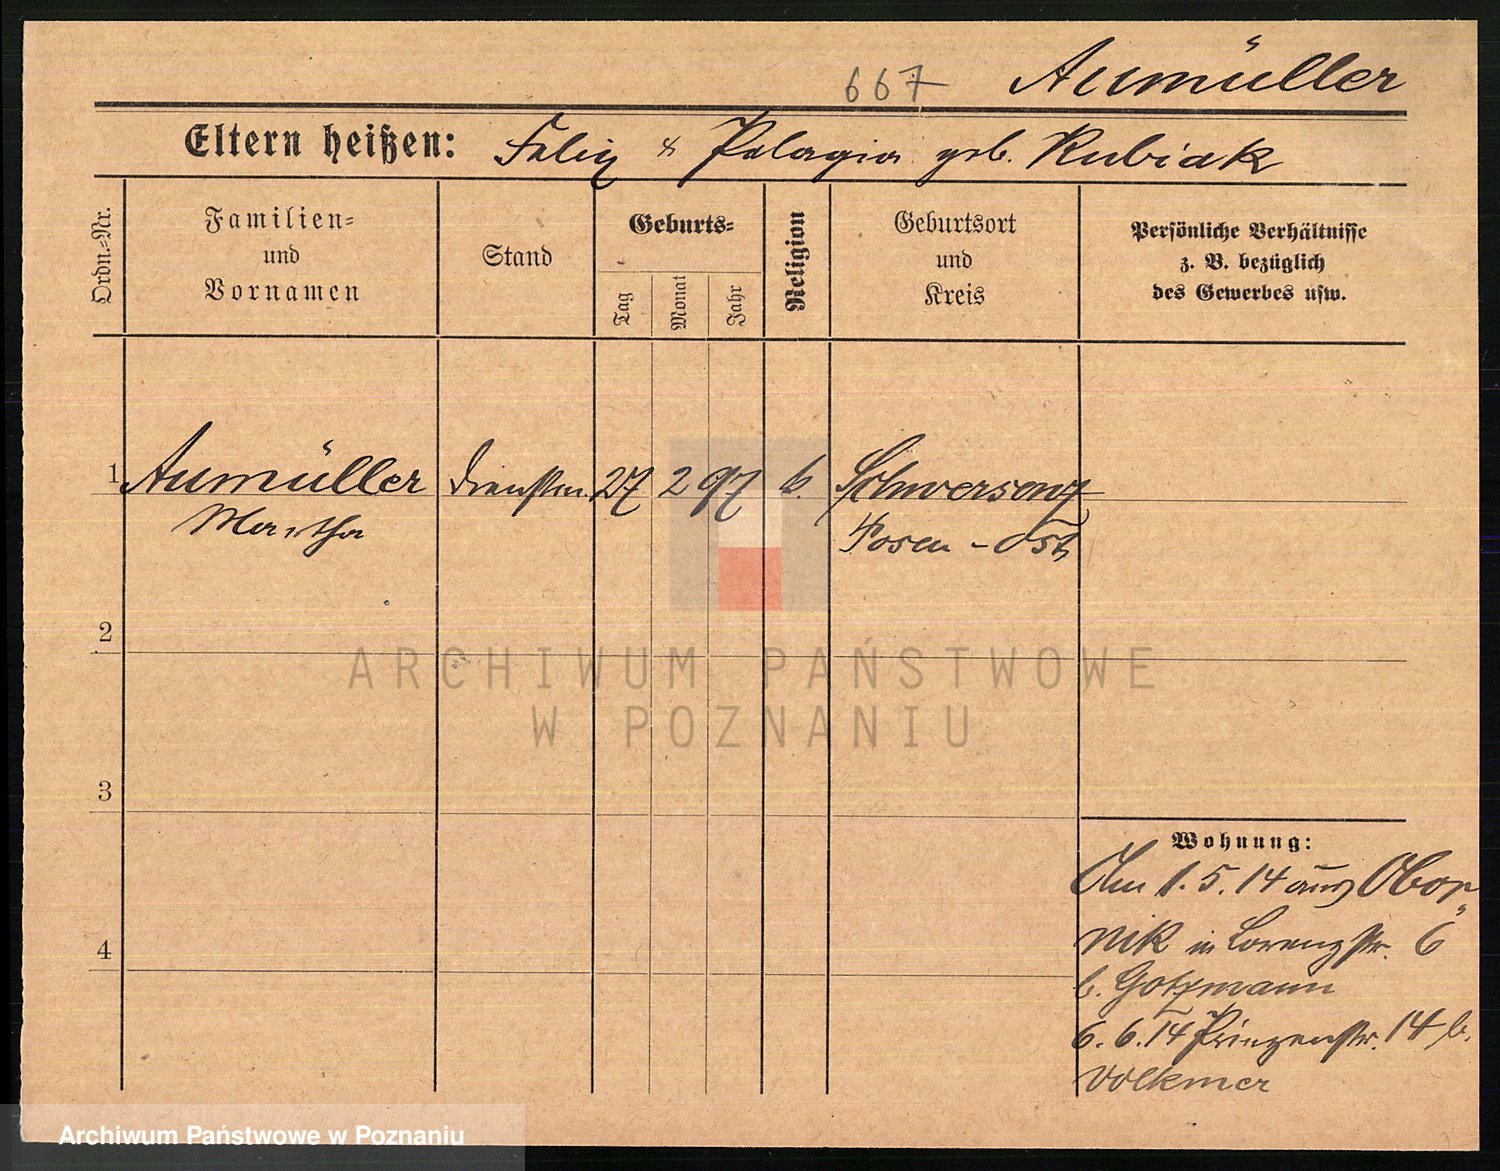 667 Aumüller
Eltern heißen: Felix & Pelagia geb. Kubiak
Ordn.-Nr.
Familien-
und
Vornamen
Stand
Geburts-
Tag
Monat
Jahr
Religion
Geburtsort
und
Kreis
Persönliche Verhältnisse
z. B. bezüglich
des Gewerbes usw.
1 Aumüller Dienstm. 27 2 97 k. Schwersenz
Martha Posen - Ost
2
3
4
Wohnung:
Am 1.5.14 aus Obor-
nik in Lorenzstr. 6
b. Gotzmann
6.6.14 Prinzenstr. 14 b.
Volkmer
ARCHIWUM PAŃSTWOWE
W POZNANIU
Archiwum Państwowe w Poznaniu